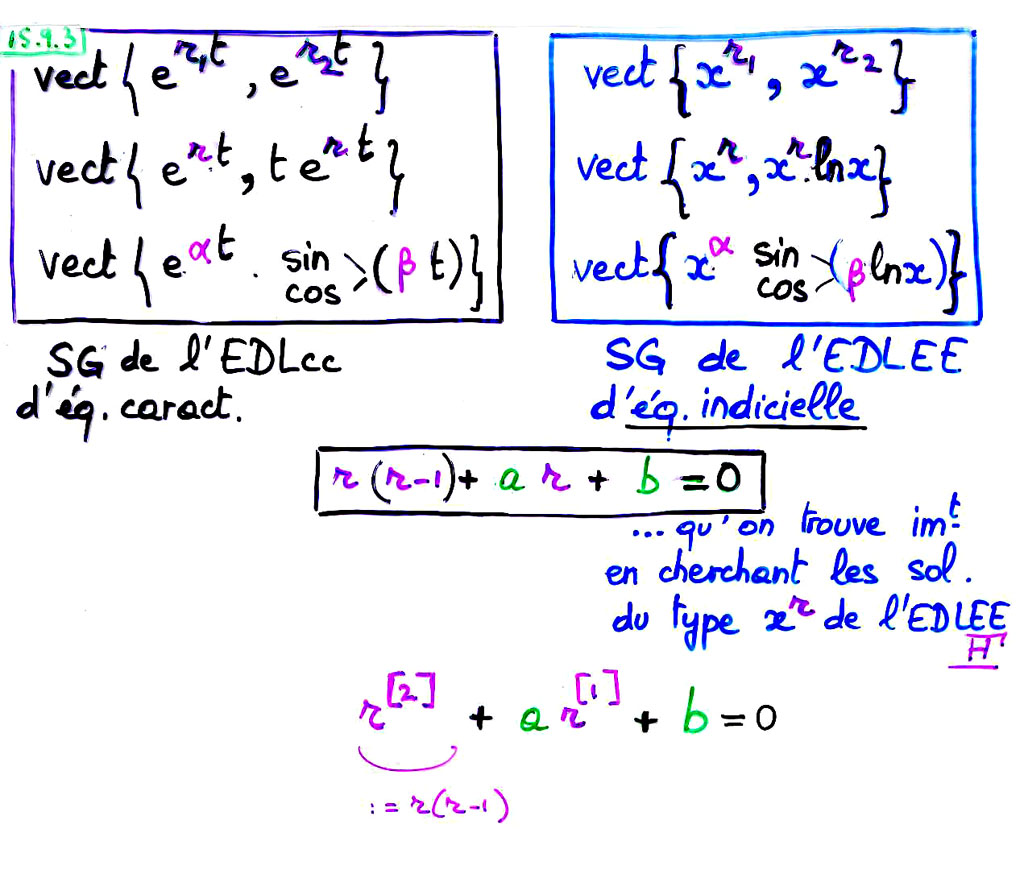 15.9.3
vect { e^{r₁t} , e^{r₂t} }
vect { e^{rt} , t e^{rt} }
vect { e^{αt} . sin cos > (β t) }
SG de l'EDLcc
d'éq. caract.
vect { x^{r₁} , x^{r₂} }
vect { x^{r} , x^{r}.ln x }
vect { x^{α} sin cos > (β ln x) }
SG de l'EDLEE
d'éq. indicielle
r (r-1) + a r + b = 0
... qu'on trouve im^t
en cherchant les sol.
du type x^{r} de l'EDLEE
H
r^{[2]} + a r^{[1]} + b = 0
:= r(r-1)